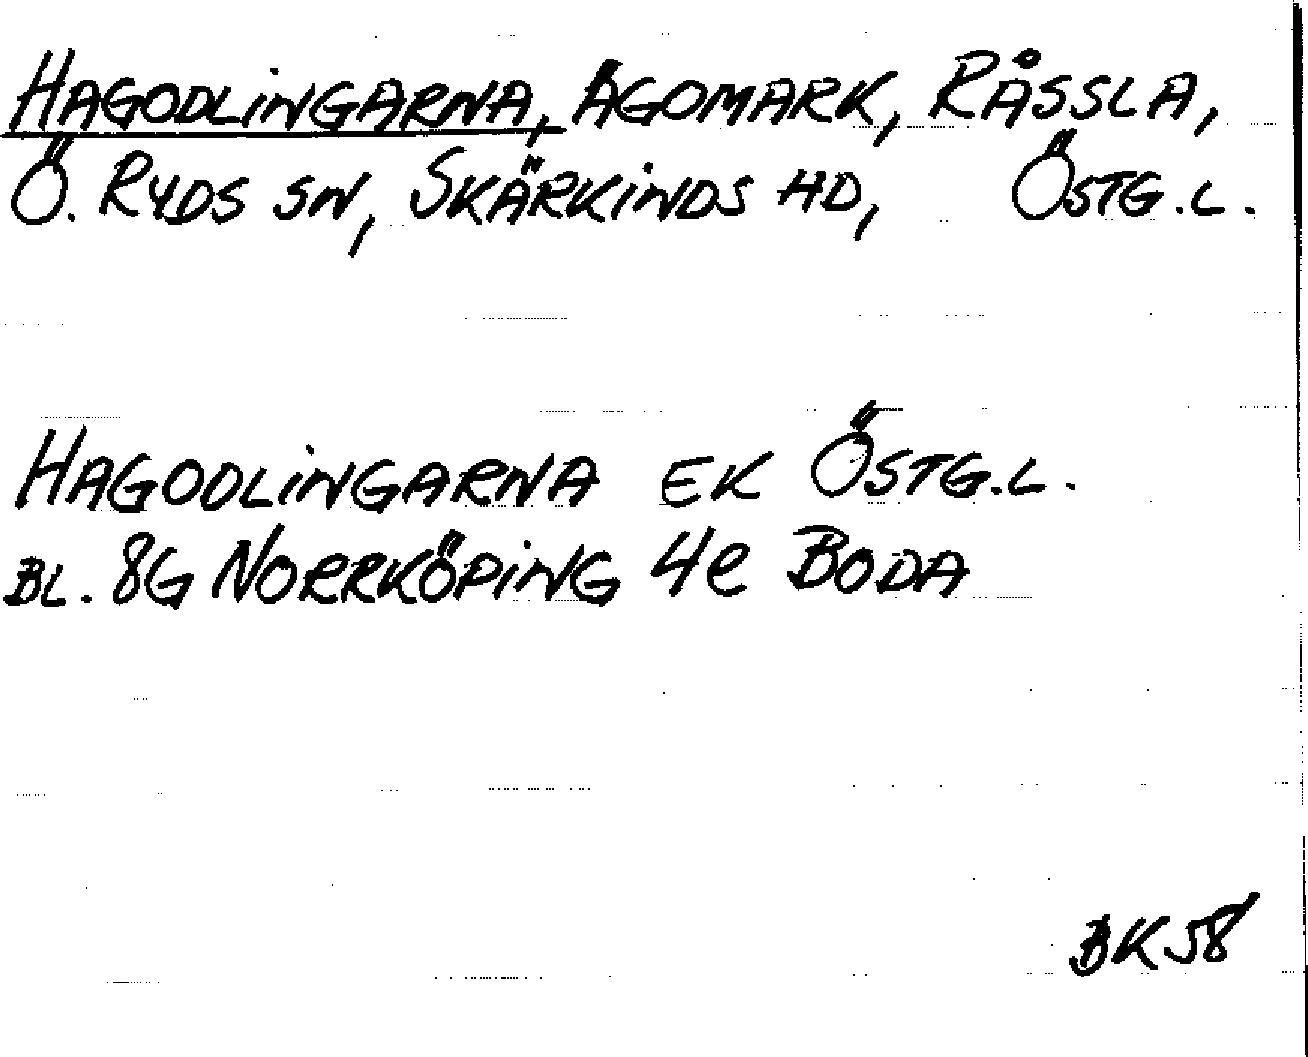 HAGODLINGARNA, ÄGOMARK, RÅSSLA,
Ö. RYDS SN, SKÄRKINDS HD, ÖSTG.L.
HAGODLINGARNA EK ÖSTG.L.
BL. 8G NORRKÖPING 4e BODA
BK58